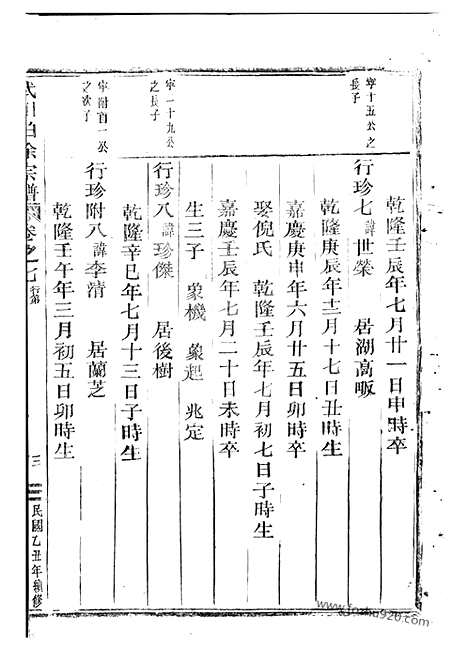 乾隆壬辰年七月廿一日申時卒
寧十五公之
長子
行珍七 諱世榮 居湖高畈
乾隆庚辰年十二月十七日丑時生
嘉慶庚申年六月廿五日卯時卒
娶倪氏 乾隆壬辰年七月初七日子時生
嘉慶壬辰年七月二十日未時卒
生三子 象機 象起 兆定
寧一十九公
之長子
行珍八 諱珍傑 居後樹
乾隆辛巳年七月十三日子時生
寧附百一公
之次子
行珍附八 諱李清 居蘭芝
乾隆壬午年三月初五日卯時生
柏徐宗譜 卷之七 行第
三
民國乙丑年續修